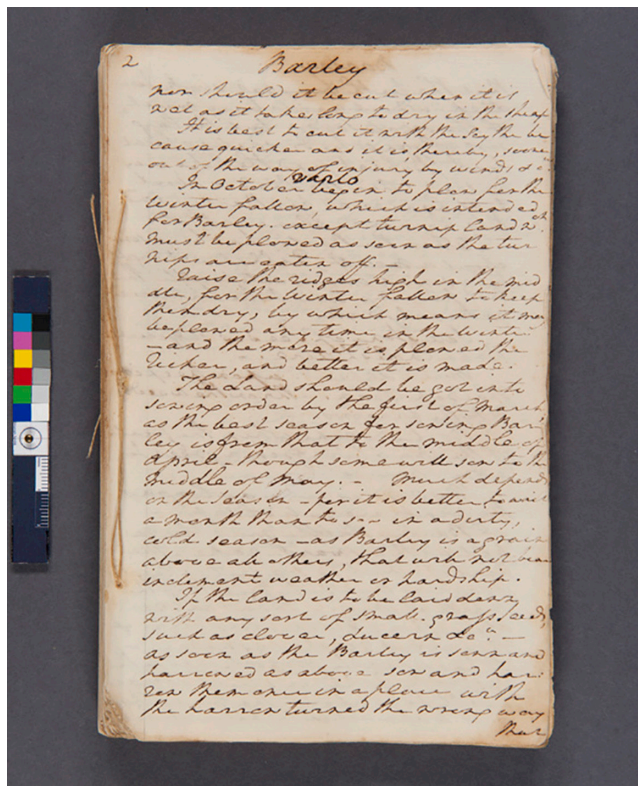 2 Barley
nor should it be cut when it is
wet as it takes long to dry in the
It is best to cut it with the Scythe be
cause quicker and it is, thereby, sooner
out of the way of injury by winds &c
early
In October begin to plow for the
Winter fallow, which is intended
for Barley. except turnip Land wch.
must be plowed as soon as the tur
nips are eaten off. —
Raise the ridges high in the mid
dle, for the Winter fallow to keep
them dry, by which means it may
be plowed any time in the Winter
— and the more it is plowed the
richer, and better it is made.
The Land should be got into
sowing order by the first of March
as the best season for sowing Bar
ley is from that to the middle of
April — though some will sow to the
middle of May. — Much depends
on the season — for it is better to wait
a month than to sow in a dirty,
cold season — as Barley is a grain
above all others, that will not bear
inclement weather or hardship.
If the Land is to be laid down
with any sort of small grass seeds
such as clover, Lucern &ca. —
as soon as the Barley is sown and
harrowed as above sow and har:
row them once in a place with
the harrow turned the wrong way
that